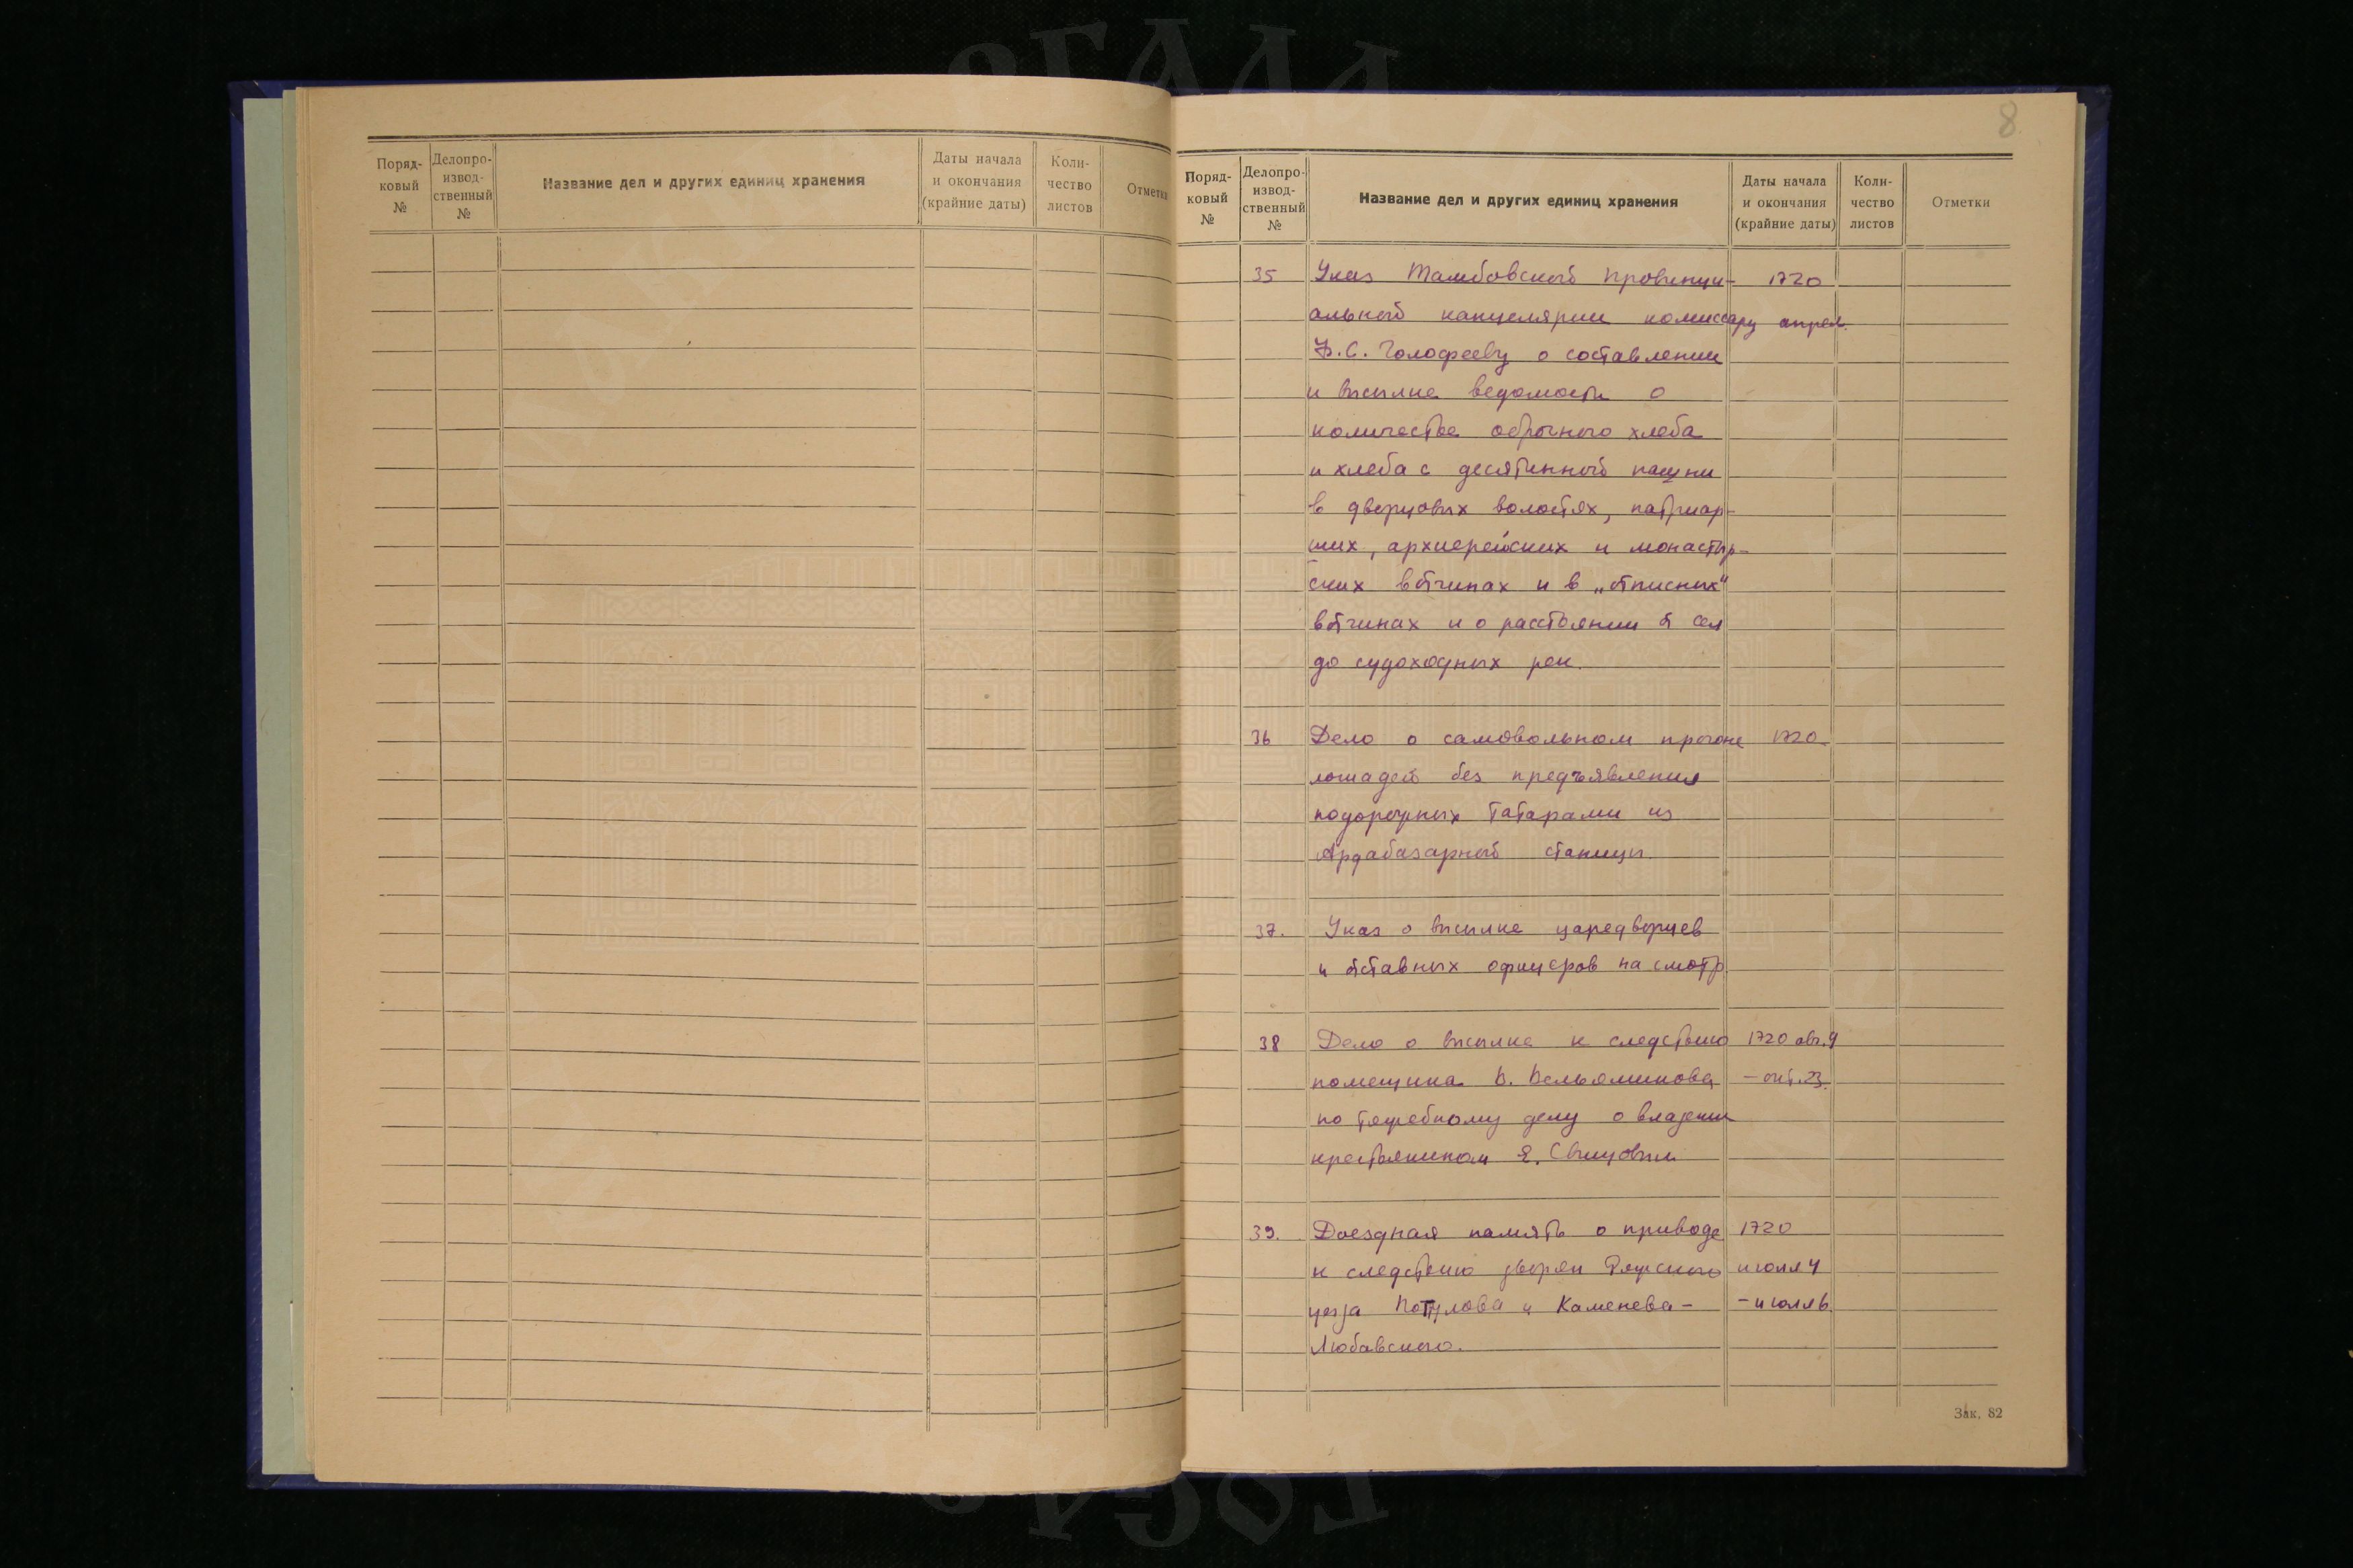 8
Поряд-
ковый
№
Делопро-
извод-
ственный
№
Название дел и других единиц хранения
Даты начала
и окончания
(крайние даты)
Коли-
чество
листов
Отметки
Поряд-
ковый
№
Делопро-
извод-
ственный
№
Название дел и других единиц хранения
Даты начала
и окончания
(крайние даты)
Коли-
чество
листов
Отметки
35 Указ Тамбовской провинци- 1720
альной канцелярии комиссару апрел.
Ф.С. Голофееву о составлении
и высылке ведомости о
количестве оброчного хлеба
и хлеба с десятинной пашни
в дворцовых волостях, патриар-
ших, архиерейских и монастыр-
ских вотчинах и в „отписных"
вотчинах и о расстоянии от сел
до судоходных рек.
36 Дело о самовольном прогоне 1720
лошадей без предъявления
подорожных татарами из
Ардабазарной станицы.
37. Указ о высылке царедворцев
и отставных офицеров на смотр.
38 Дело о высылке к следствию 1720 авг. 9
помещика В. Вельяминова – окт. 23.
по тяжебному делу о владении
крестьянином Я. Свинцовым
39. Доездная память о приводе 1720
к следствию дворян Ряжского июля 4
уезда Потулова и Каменева- – июля 6.
Любавского.
Зак. 82